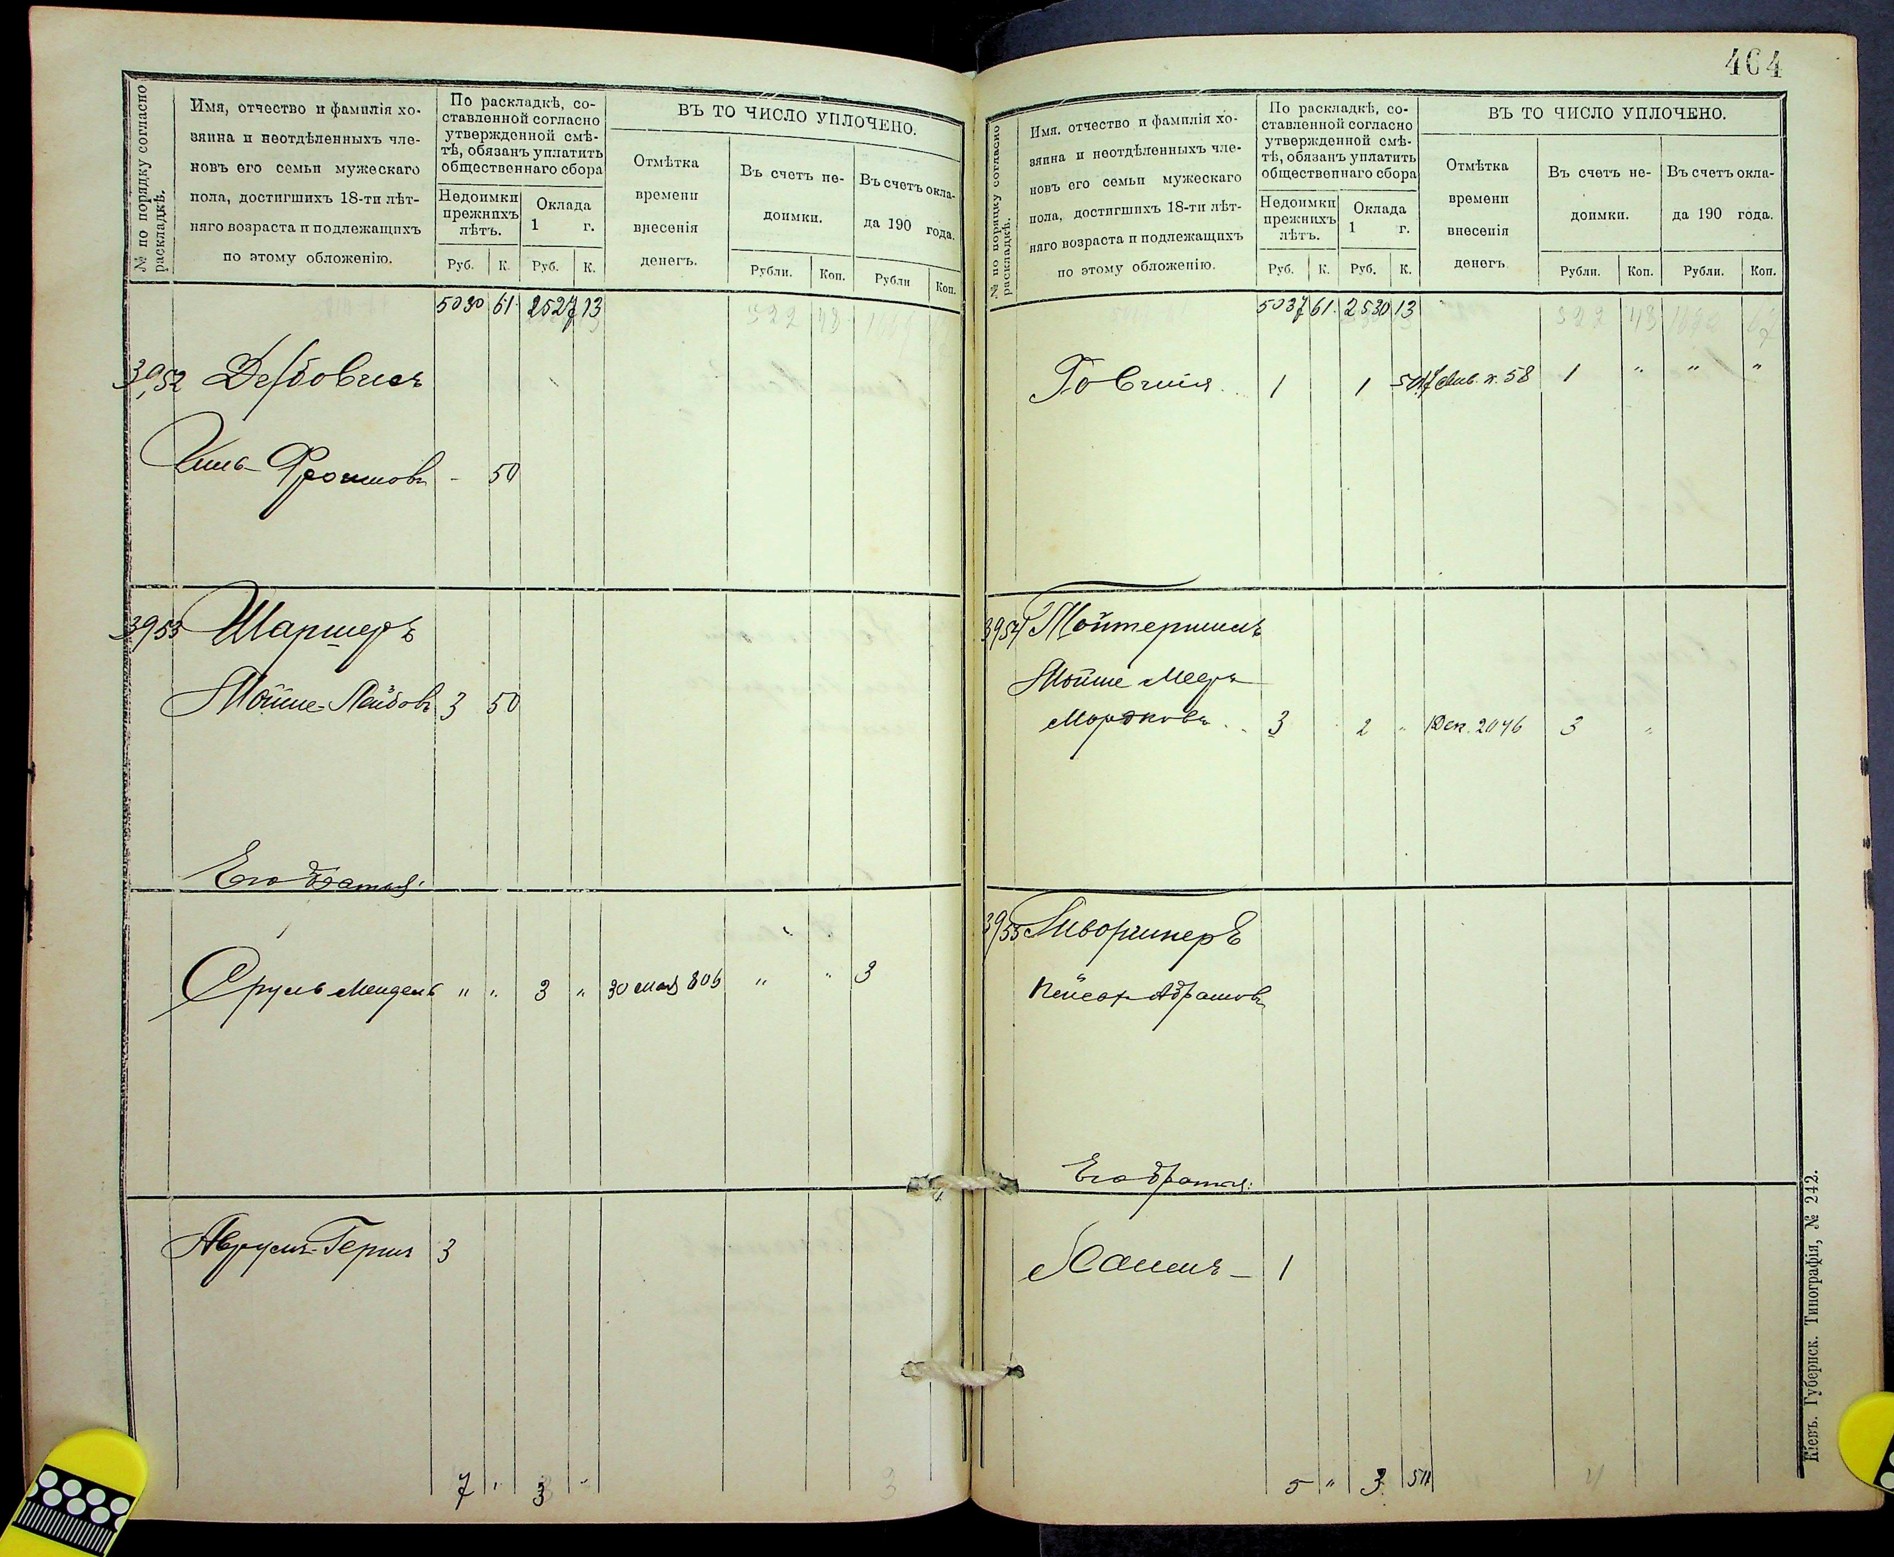 № по порядку согласно раскладкѣ.
Имя, отчество и фамилія хо-
зяина и неотдѣленныхъ чле-
новъ его семьи мужескаго
пола, достигшихъ 18-ти лѣт-
няго возраста и подлежащихъ
по этому обложенію.
По раскладкѣ, со-
ставленной согласно
утвержденной смѣ-
тѣ, обязанъ уплатить
общественнаго сбора
Недоимки
прежнихъ
лѣтъ.
Оклада
1 г.
Руб. К. Руб. К.
ВЪ ТО ЧИСЛО УПЛОЧЕНО.
Отмѣтка
времени
внесенія
денегъ.
Въ счетъ не-
доимки.
Рубли. Коп.
Въ счетъ окла-
да 190 года.
Рубли Коп.
5030 61 2527 13
3952
- 50
3953 Шаршеръ
Мойше-Лейбовъ 3 50
Его братья:
Сруль Мендель " " 3 " 30 мая 806 " " 3
Аврумъ-Гершъ 3
7 " 3 "
464
№ по порядку согласно раскладкѣ.
Имя, отчество и фамилія хо-
зяина и неотдѣленныхъ чле-
новъ его семьи мужескаго
пола, достигшихъ 18-ти лѣт-
няго возраста и подлежащихъ
по этому обложенію.
По раскладкѣ, со-
ставленной согласно
утвержденной смѣ-
тѣ, обязанъ уплатить
общественнаго сбора
Недоимки
прежнихъ
лѣтъ.
Оклада
1 г.
Руб. К. Руб. К.
ВЪ ТО ЧИСЛО УПЛОЧЕНО.
Отмѣтка
времени
внесенія
денегъ.
Въ счетъ не-
доимки.
Рубли. Коп.
Въ счетъ окла-
да 190 года.
Рубли. Коп.
5037 61 2530 13
1 1 50 58 1 " " "
3954
Мойше Мееръ
Мордковъ 3 2 " Дек. 2046 3 "
3955
Пейсах Абрамовъ
Его братья:
Хаимъ - 1
5 " 3 50
Кіевъ. Губернск. Типографія, № 242.